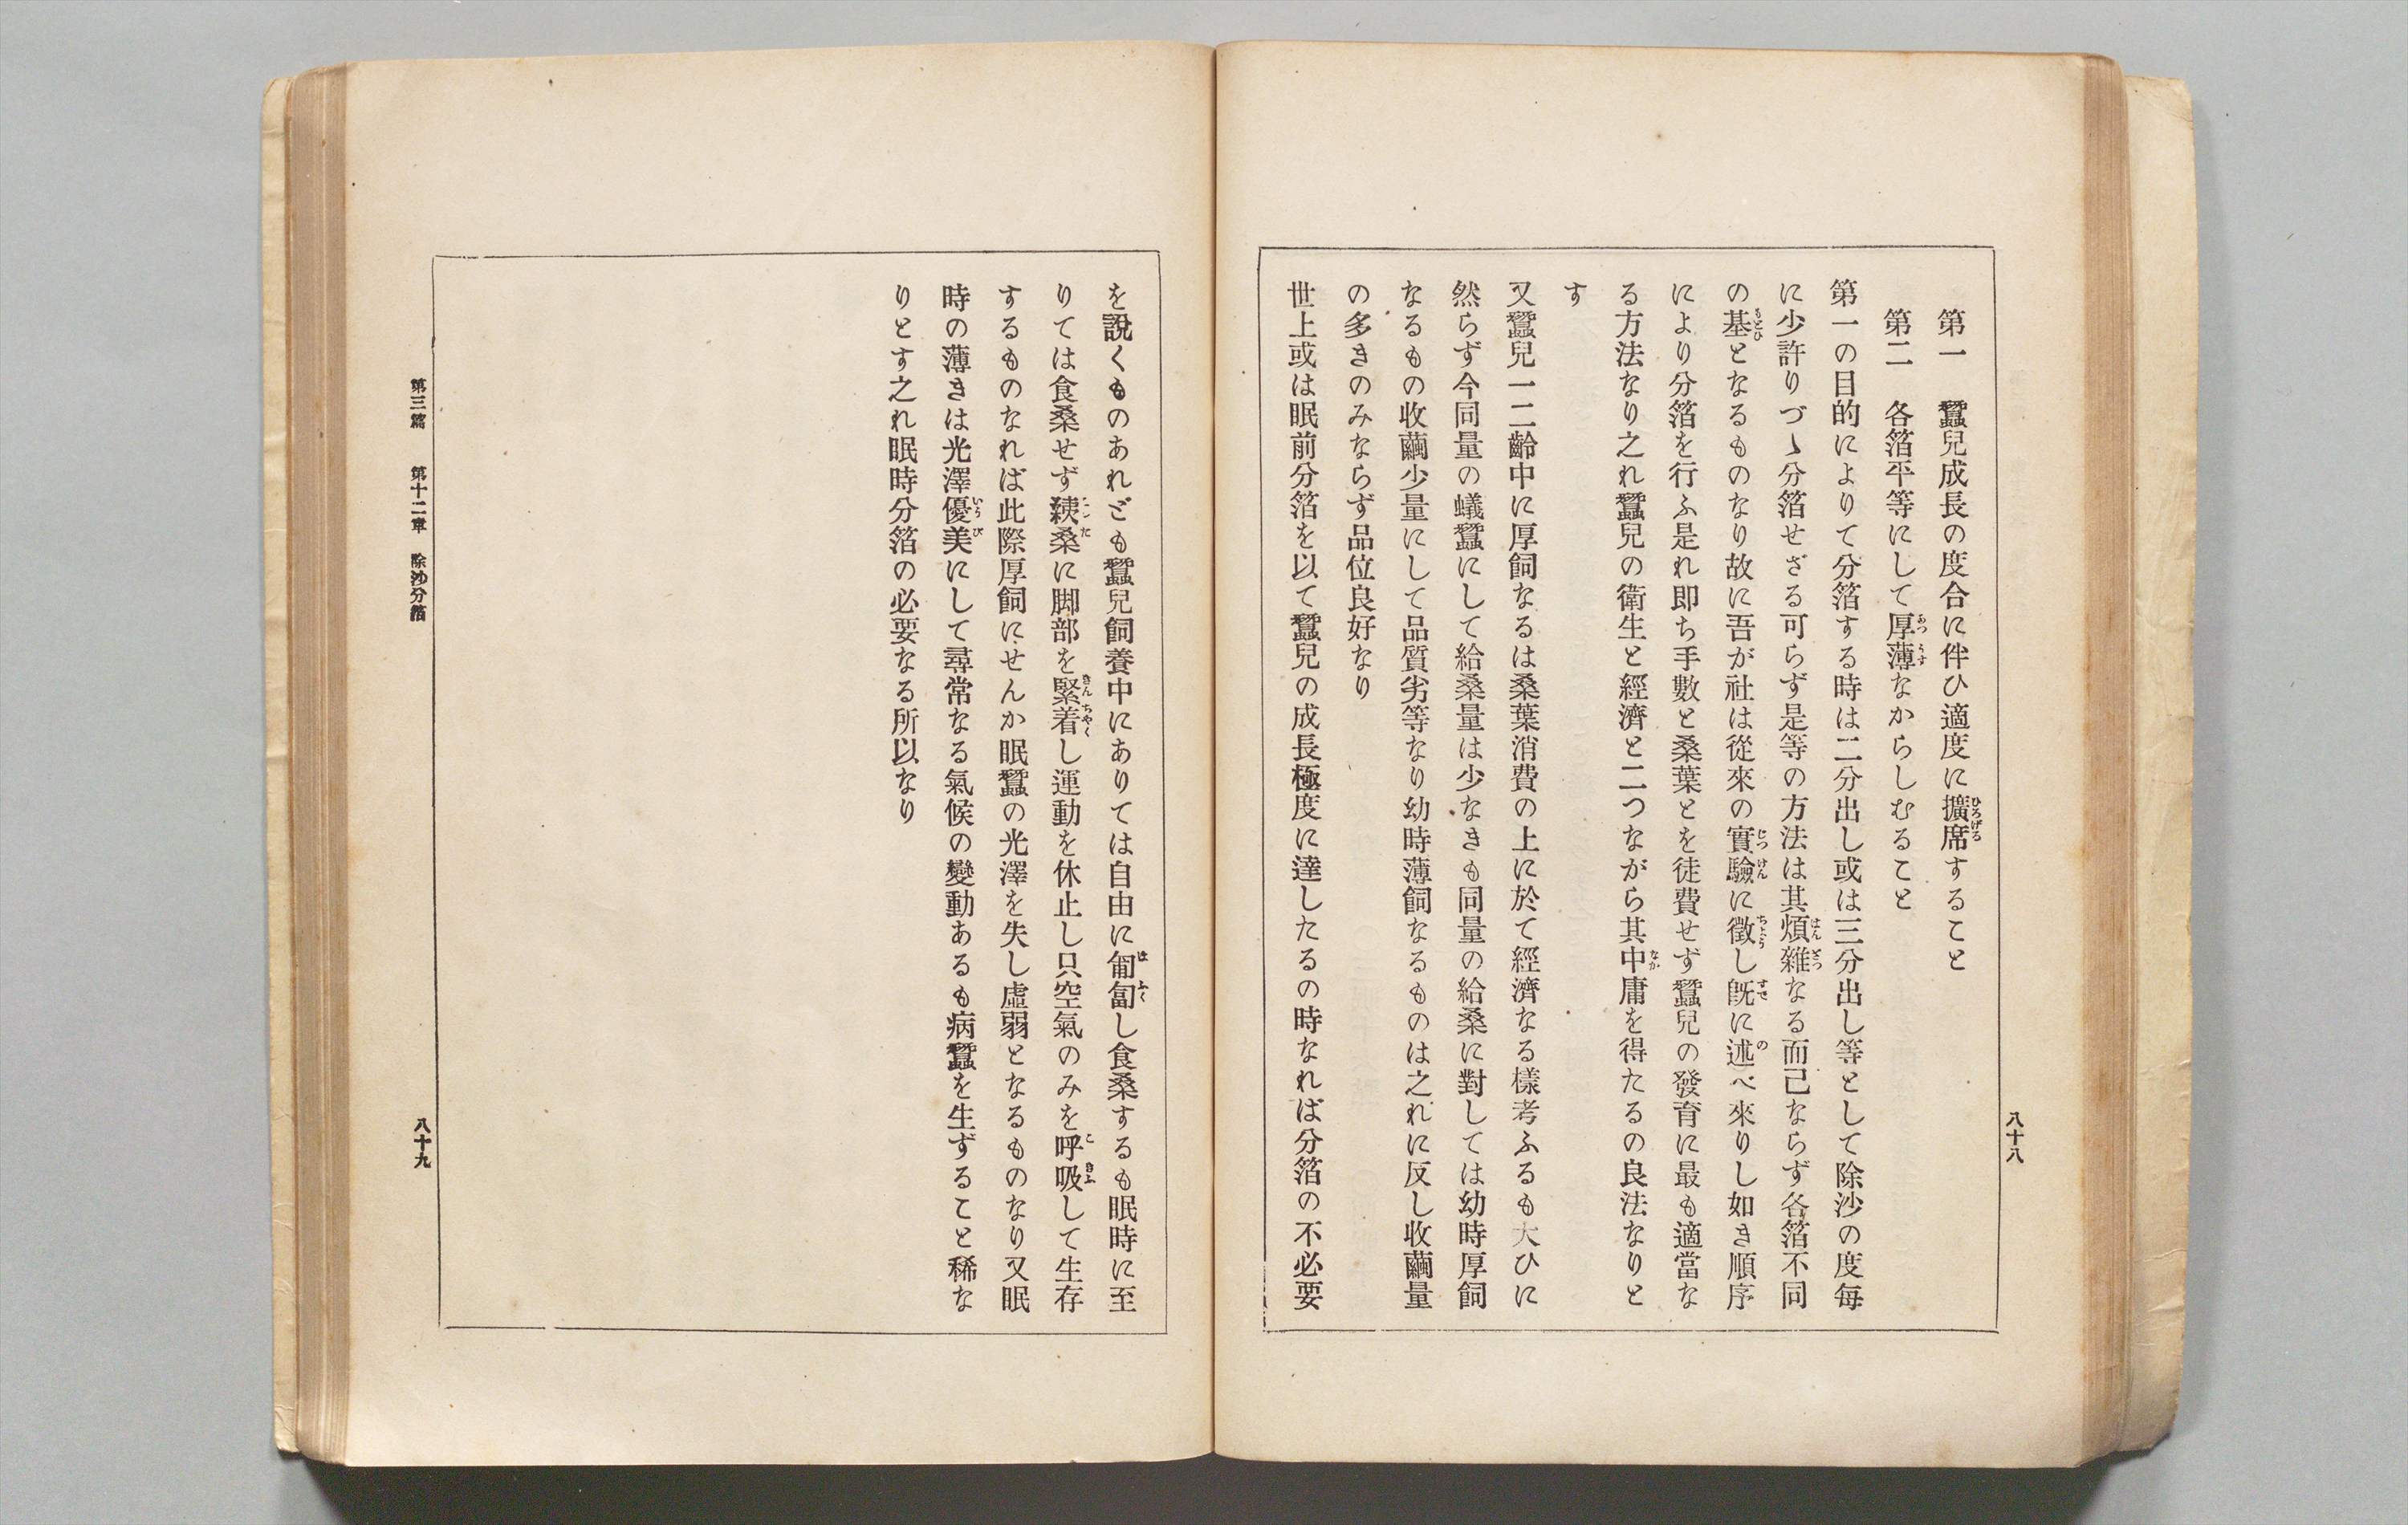 第一　蠶兒成長の度合に伴ひ適度に擴席すること
第二　各箔平等にして厚薄なからしむること
第一の目的によりて分箔する時は二分出し或は三分出し等として除沙の度每
に少許りづゝ分箔せざる可らず是等の方法は其煩雜なる而己ならず各箔不同
の基となるものなり故に吾が社は從來の實驗に徵し旣に述べ來りし如き順序
により分箔を行ふ是れ卽ち手數と桑葉とを徒費せず蠶兒の發育に最も適當な
る方法なり之れ蠶兒の衛生と經濟と二つながら其中庸を得たるの良法なりと
す
又蠶兒一二齡中に厚飼なるは桑葉消費の上に於て經濟なる樣考ふるも大ひに
然らず今同量の蟻蠶にして給桑量は少なきも同量の給桑に對しては幼時厚飼
なるもの收繭少量にして品質劣等なり幼時薄飼なるものは之れに反し收繭量
の多きのみならず品位良好なり
世上或は眠前分箔を以て蠶兒の成長極度に達したるの時なれば分箔の不必要
八十八
を說くものあれども蠶兒飼養中にありては自由に匍匐し食桑するも眠時に至
りては食桑せず桑に脚部を緊着し運動を休止し只空氣のみを呼吸して生存
するものなれば此際厚飼にせんか眠蠶の光澤を失し虛弱となるものなり又眠
時の薄きは光澤優美にして尋常なる氣候の變動あるも病蠶を生ずること稀な
りとす之れ眠時分箔の必要なる所以なり
第三篇　第十二章　除沙分箔
八十九